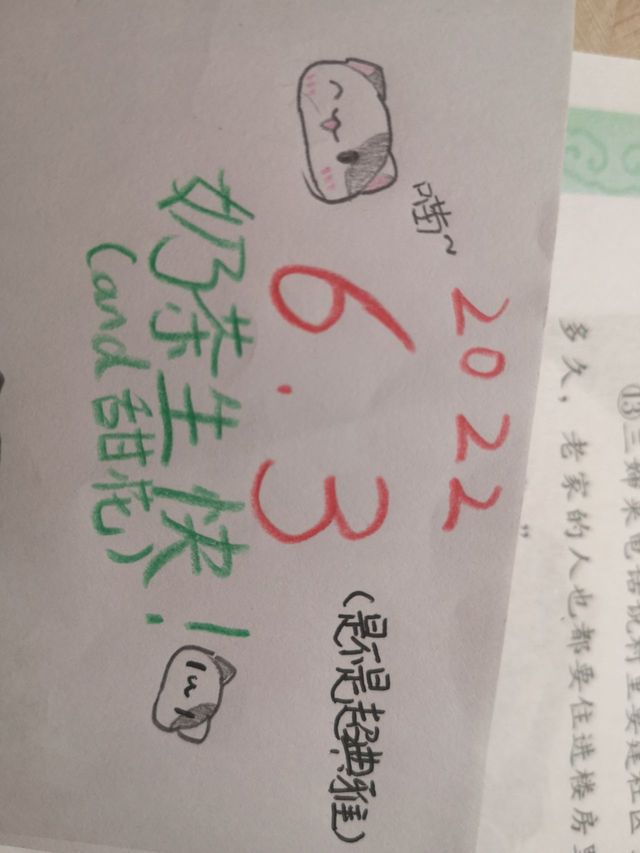 ⑬三婶来电话说村里要建社区
多久，老家的人也都要住进楼房里
2022
喵~
6.3
(是不是超典雅)
奶茶生快！
(and甜花)